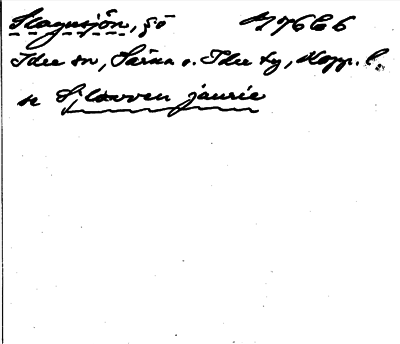 Slagusjön, sö 176C6
Idre sn, Särna o. Idre tg, Kopp. l.
se Slåvven jaurie